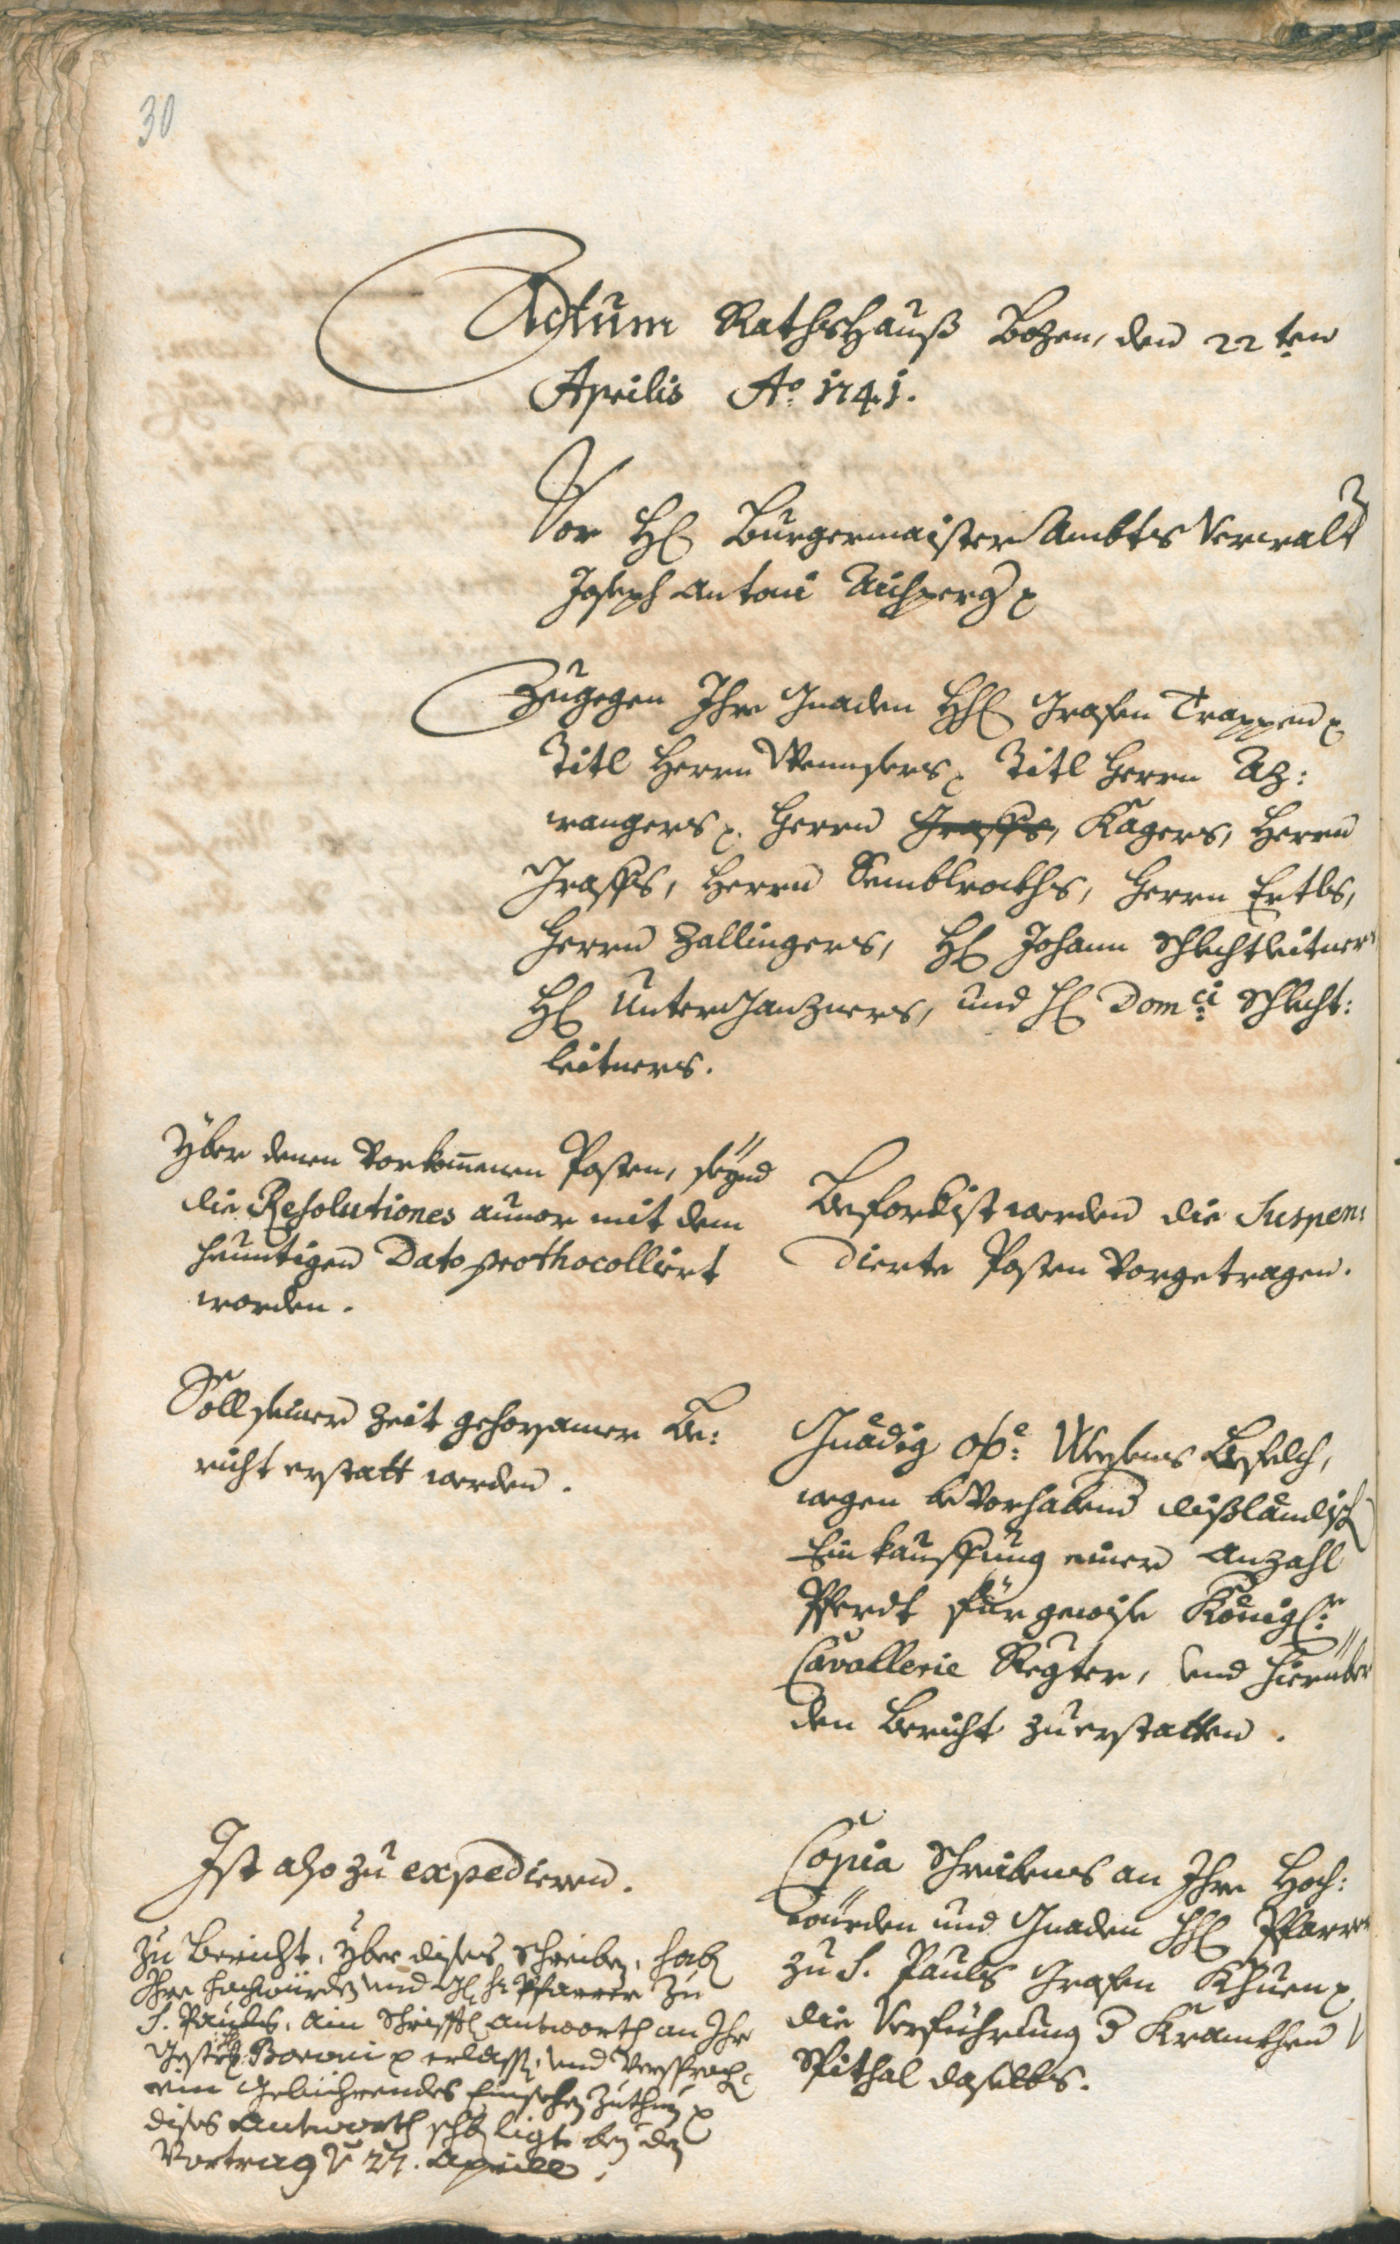 30
Actum RathsHauß Bozen, den 22ten
Aprilis Ao: 1741.
Vor H: Burgermaister Ambts Verwalt
Joseph Antoni Aichperg p
Zugegen Ihro Gnaden HH: Grafen Trappen p
Titl Herrn Wenners p Titl Herrn Az:
wangers p. Herrn Graffs, Kagers, Herrn
Graffs, Herrn Semblraths, Herrn Ertls,
Herrn Zallingers, H: Johann Schlechtleitners
H: Unterganzners, und H: Domci: Schlecht:
leitners.
Yber denen Vorkomenen Posten, seynd
die Resolutiones anvor mit dem
heuntigen Dato prothocolliert
worden.
Befordist werden die Suspen:
dierte Posten Vorgetragen.
Soll seiner Zeit gehorsamer Be:
richt erstatt werden.
Gnädig oö: Weesens Befelch,
wegen bevorhabend Außländisch
Einkauffung einer Anzahl
Pferdt für gewise Königl:r
Cavallerie Regter, und hierüber
den Bericht zuerstatten.
Ist also zu expedieren.
Zu Bericht. Yber dises Schreiben, hab
Ihro Hochwürden und H: Pfarrer zu
S. Pauls, ain Schrifftl: Antworth an Ihr
Baroni p erlassen, und Versproch:
ein Gebührendes Einsehen zuthun p
dises Antworth schr: ligt bey dem
Vortrag 27. Aprill.
Copia Schreibens an Ihro Hoch:
würden und Gnaden HH: Pfarrer
zu S. Pauls Grafen Khuen p
die Verführung d Kranckhen
Spithal daselbs.